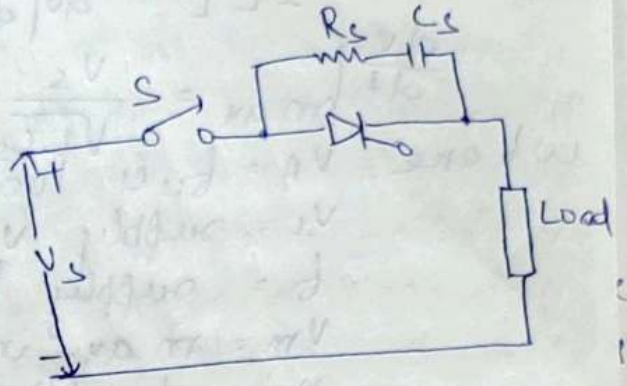 Rs Cs
S
+
Vs
Load
-